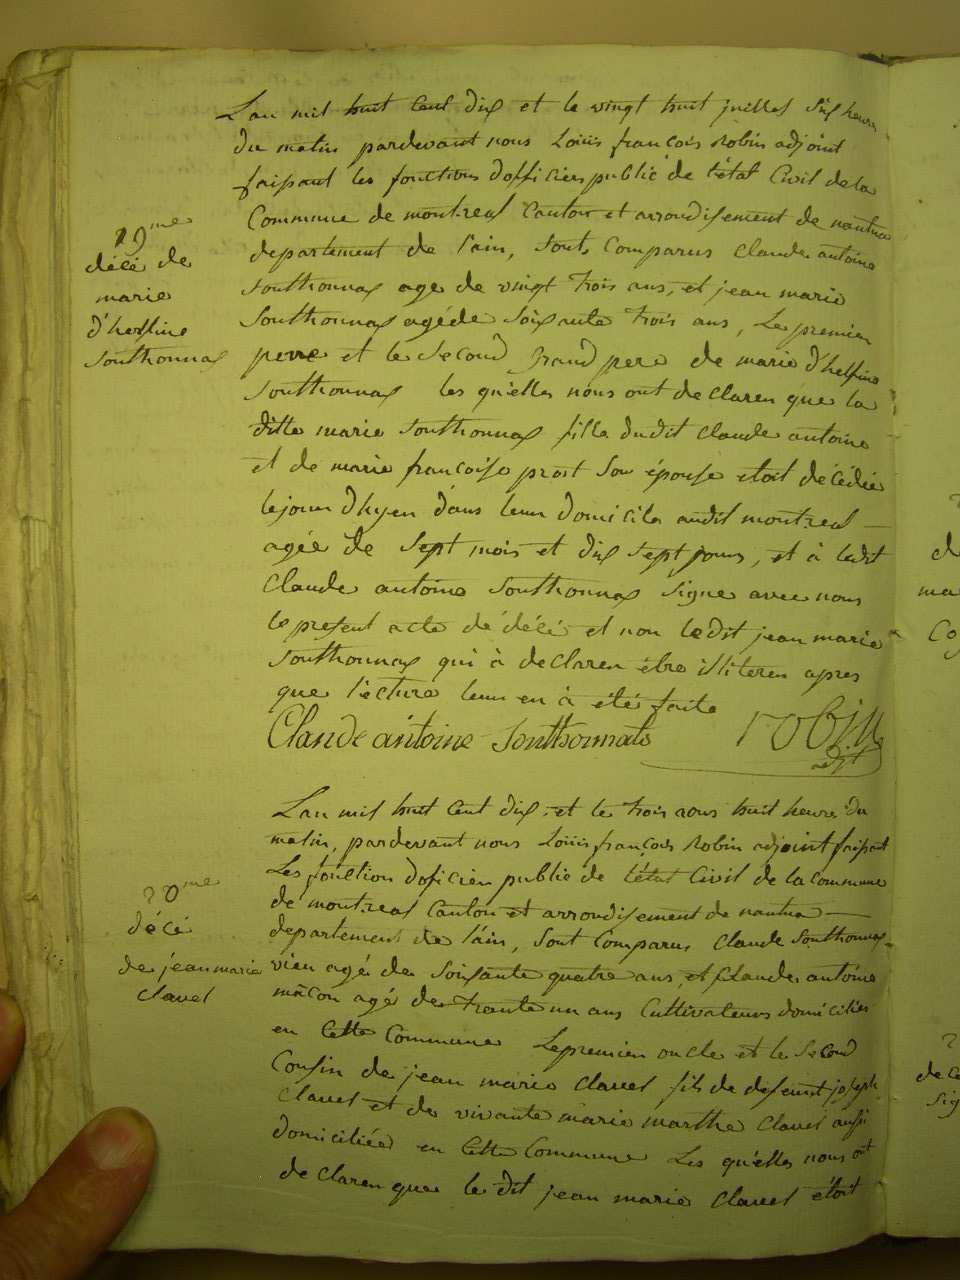 L'an mil huit Cent dix et le vingt huit juillet six heures
du matin pardevant nous Loüis françois Robin adjoint
faisant les fonctions d'officier public de l'état Civil de la
Commune de montreal Canton et arrondisement de nantua
departement de l'ain, sont, Comparus Claude antoine
Southonnax age de vingt trois ans, et jean marie
Southonnax agé de soixante trois ans, Le premier
perre et le second grand pere de marie d'helfine
Southonnax les qu'elles nous ont de claren que la
ditte marie Southonnax fille dudit Claude antoine
et de marie françoise prost son épouse etoit décédée
le jour d'hyer dans leur domicile audit montreal —
agée de sept mois et dix sept jours, et à ledit
Claude antoine Southonnax signe avec nous
le present acte de décé et non ledit jean marie
Southonnax qui à declaren être illiteren apres
que lecture leur en à été faite
Claude antoine Southonnats Robin
adjt
19me
décé de
marie
d'helfine
Southonnax
L'an mil huit Cent dix et le trois aous huit heure du
matin, pardevant nous Loüis françois Robin adjoint faisant
Les fonction d'oficier public de l'état Civil de la Commune
de montreal Canton et arrondisement de nantua —
departement de l'ain, sont Comparus Claude Southonnax
vieu agé de soixante quatre ans, et Claude antoine
mâcon agé de trante un ans Cultivateurs domiciliés
en Cette Commune Le premier oncle et le second
Cousin de jean marie Clavel fils de defeunt joseph
Clavel et de vivante marie marthe Clavel aussi
domiciliée en Cette Commune Les qu'elles nous ont
de claren que le dit jean marie Clavel étoit
20me
décé
de jean marie
Clavel